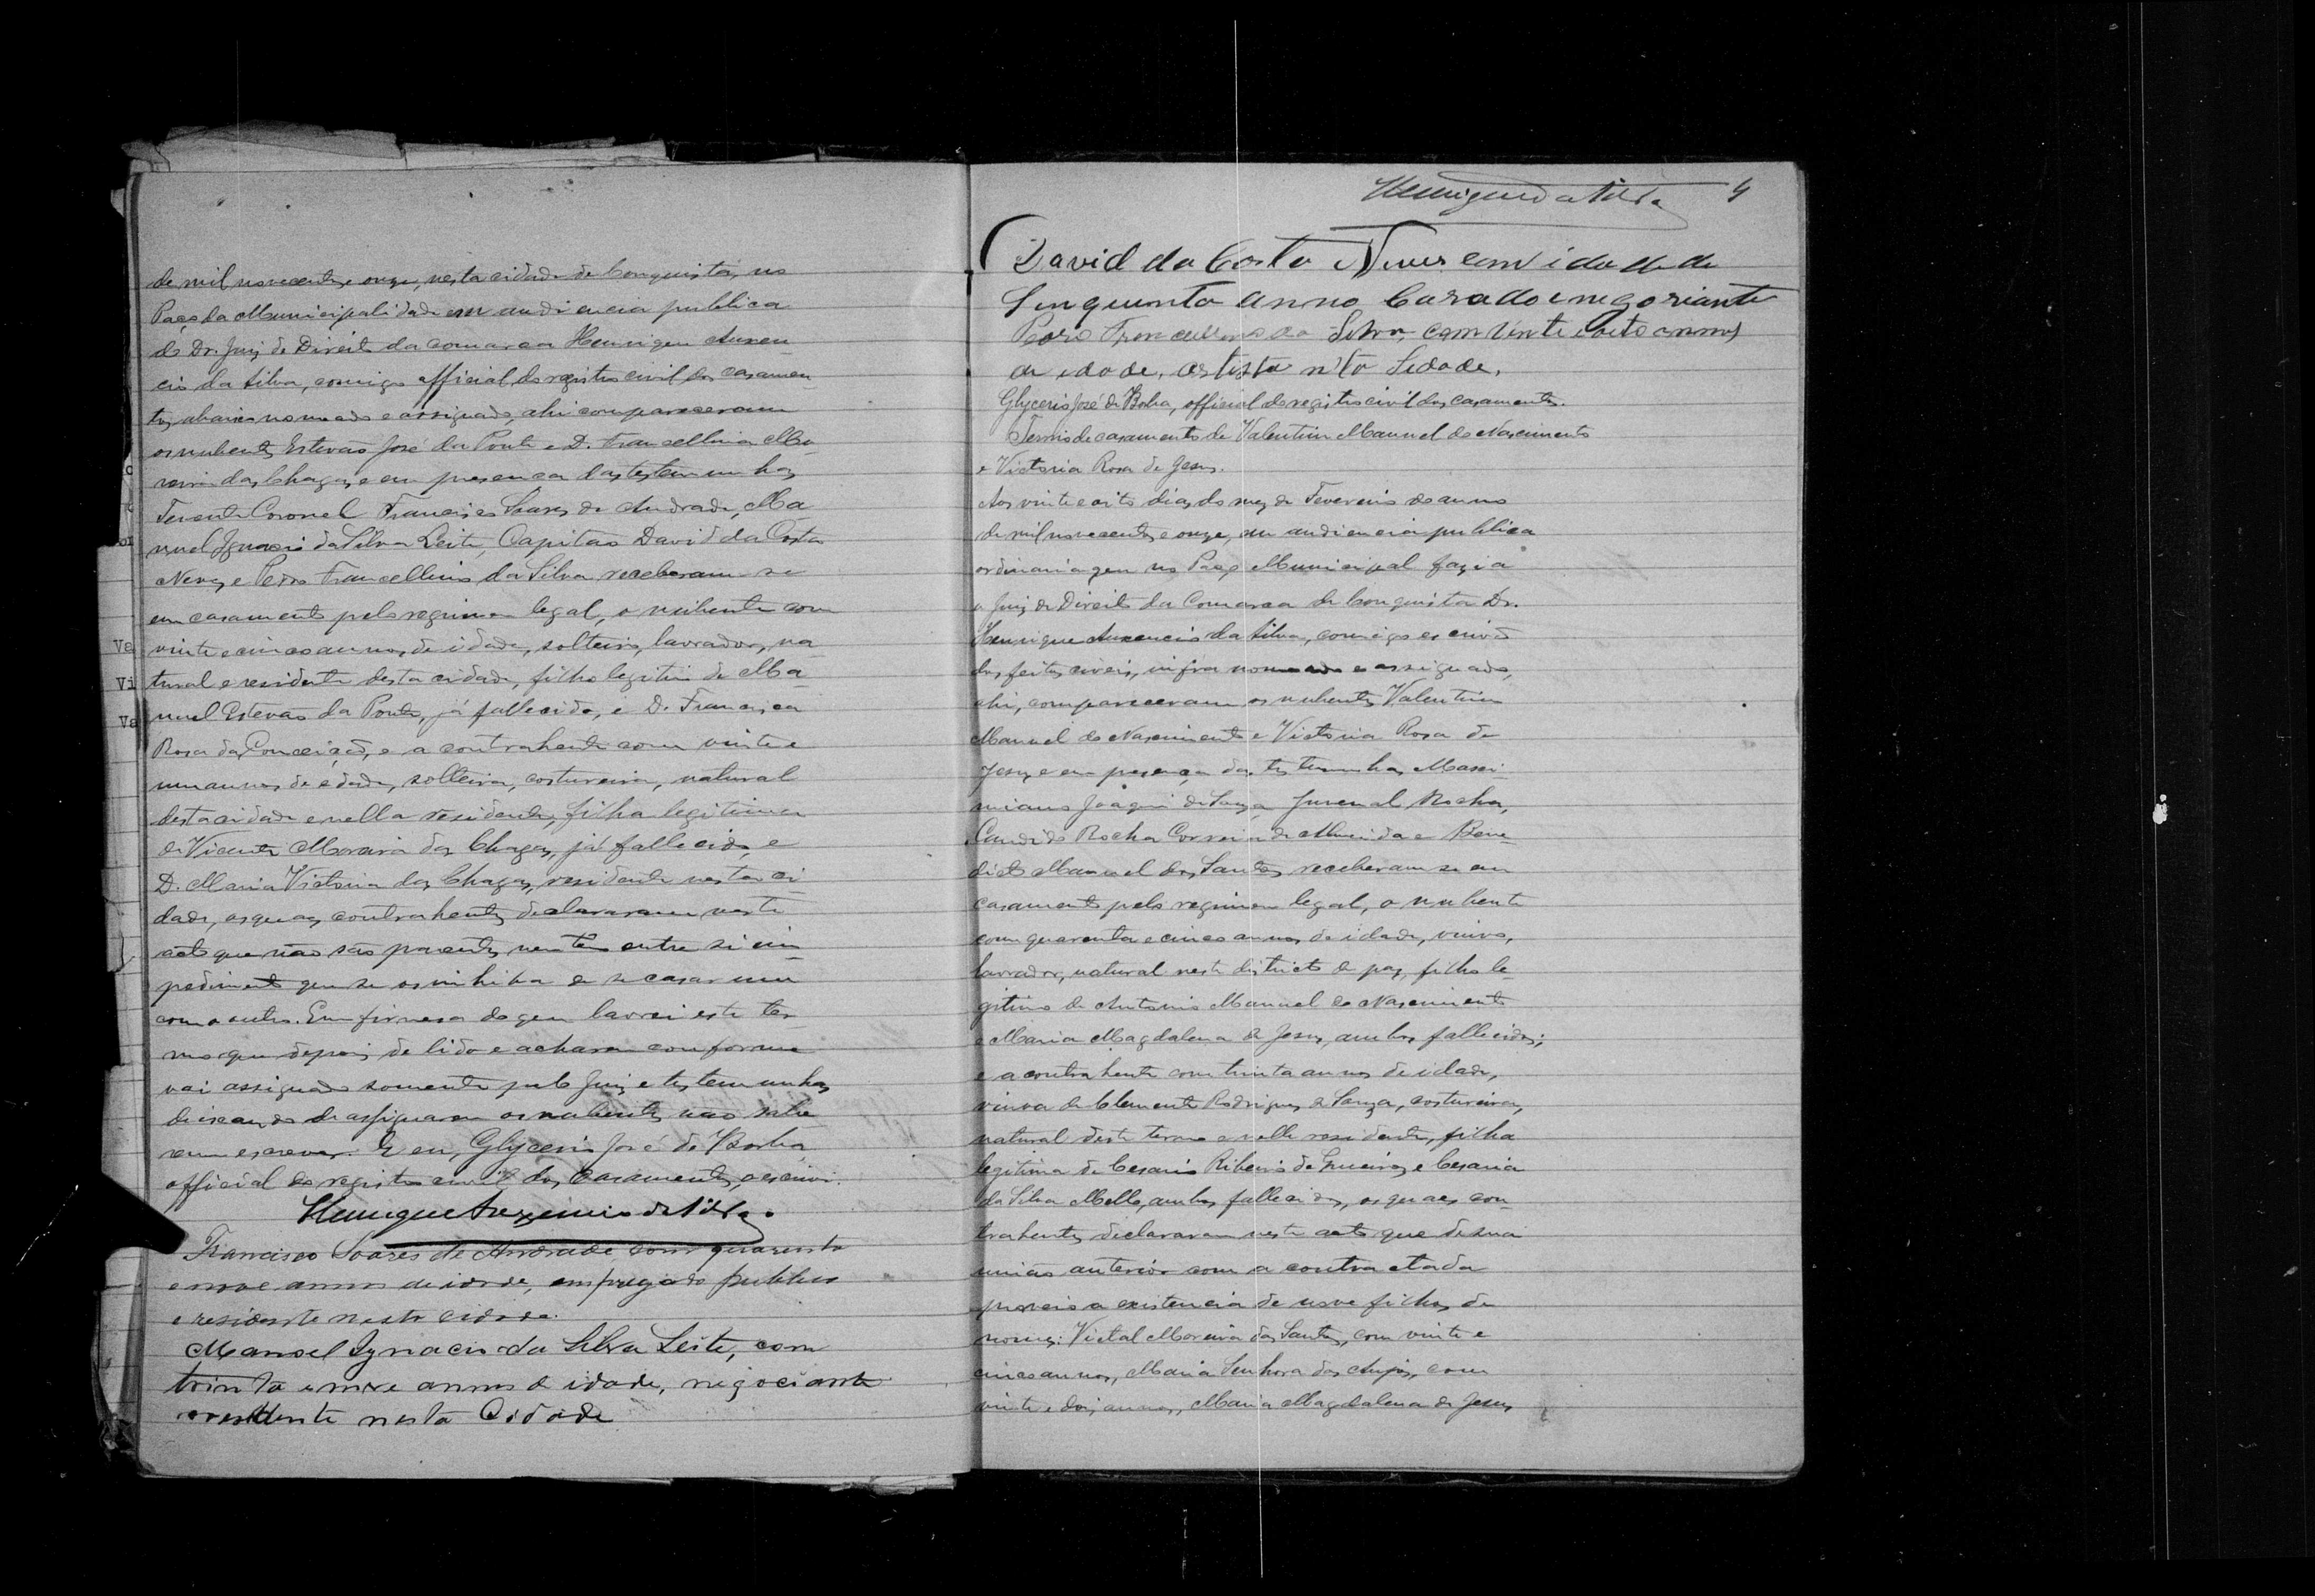 de mil novecentos e onze, nesta cidade de Conquista, no
Paço da Municipalidade em audiencia publica
do Dr. Juiz de Direito da comarca Henrique Auxen-
cio da Silva, comigo official do registro civil dos casamen-
tos, abaixo nomeado e assignado, ahi compareceram
os nubentes Estevão José da Ponte e D. Francellina Mo-
reira das Chagas, e em presença das testemunhas
Tenente Coronel Francisco Soares de Andrade, Ma
nuel Ignacio da Silva Leite, Capitão David da Costa
Neves e Pedro Francellino da Silva receberam se
em casamento pelo regimen legal, o nubente com
vinte e cinco annos de idade, solteiro, lavrador, na-
tural e residente desta cidade, filho legitimo de Ma-
nuel Estevão da Ponte, já fallecido, e D. Francisca
Rosa da Conceição, e a contrahente com vinte e
um annos de edade, solteira, costureira, natural
desta cidade e nella residente, filha legitima
de Vicente Moreira das Chagas, já fallecido, e
D. Maria Victoria das Chagas, residente nesta ci-
dade, os quaes contrahentes declararam neste
acto que não são parentes nem têm entre si im-
pedimento que se os inhiba de se casar um
com o outro. Em firmesa do que lavrei este ter
mo que depois de lido e acharem conforme
vai assignado somente pelo Juiz e testemunhas
deixando de assignarem os nubentes não sabe
rem escrever. E eu, Glycerio José da Borba
official do registro civil dos casamentos, o escrivi.
Henrique Auxencio da Silva.
Francisco Soares de Andrade com quarenta
e nove annos de idade, empregado publico
e residente nesta cidade.
Manoel Ignacio da Silva Leite, com
trinta e nove annos d idade, negociante
residente nesta Cidade
Henrique da Silva 4
David da Costa Neves com idade de
Sinquenta anno Casado e negoriante
Pedro Francellino da Silva com vinte e oito annos
de idade, artista n'ta Sidade.
Glycerio José da Borba, official do registro civil dos casamentos.
Termo de casamento de Valentim Manuel do Nascimento
e Victoria Rosa de Jesus.
Aos vinte e oito dias do mez de Fevereiro do anno
de mil novecentos e onze, em audiencia publica
ordinaria que no Paço Municipal fazia
o Juiz de Direito da Comarca de Conquista Dr.
Henrique Auxencio da Silva, comigo escrivão
dos feitos civeis, infra nomeado e assignado,
ahi, compareceram os nubentes Valentim
Manuel do Nascimento e Victoria Rosa de
Jesus, e em presença das testemunhas Maxi-
miano Joaquim de Souza, Juvenal Rocha,
Candido Rocha Correia de Almeida e Bene-
dicto Manuel dos Santos receberam se em
casamento pelo regimen legal, o nubente
com quarenta e cinco annos de idade, viuvo,
lavrador, natural neste districto de paz, filho le-
gitimo de Antonio Manuel do Nascimento
e Maria Magdalena de Jesus, ambos fallecidos;
e a contrahente com trinta annos de idade,
viuva de Clemente Rodrigues de Souza, costureira,
natural deste termo e nelle residente, filha
legitima de Cesario Ribeiro de e Cesaria
da Silva Mello, ambos fallecidos, os quaes con-
trahentes declararam neste acto que de sua
união anterior com a contractada
proveio a existencia de nove filhos, de
nomes: Victal Moreira dos Santos, com vinte e
cinco annos, Maria Senhora dos Anjos, com
vinte e dois annos, Maria Magdalena de Jesus